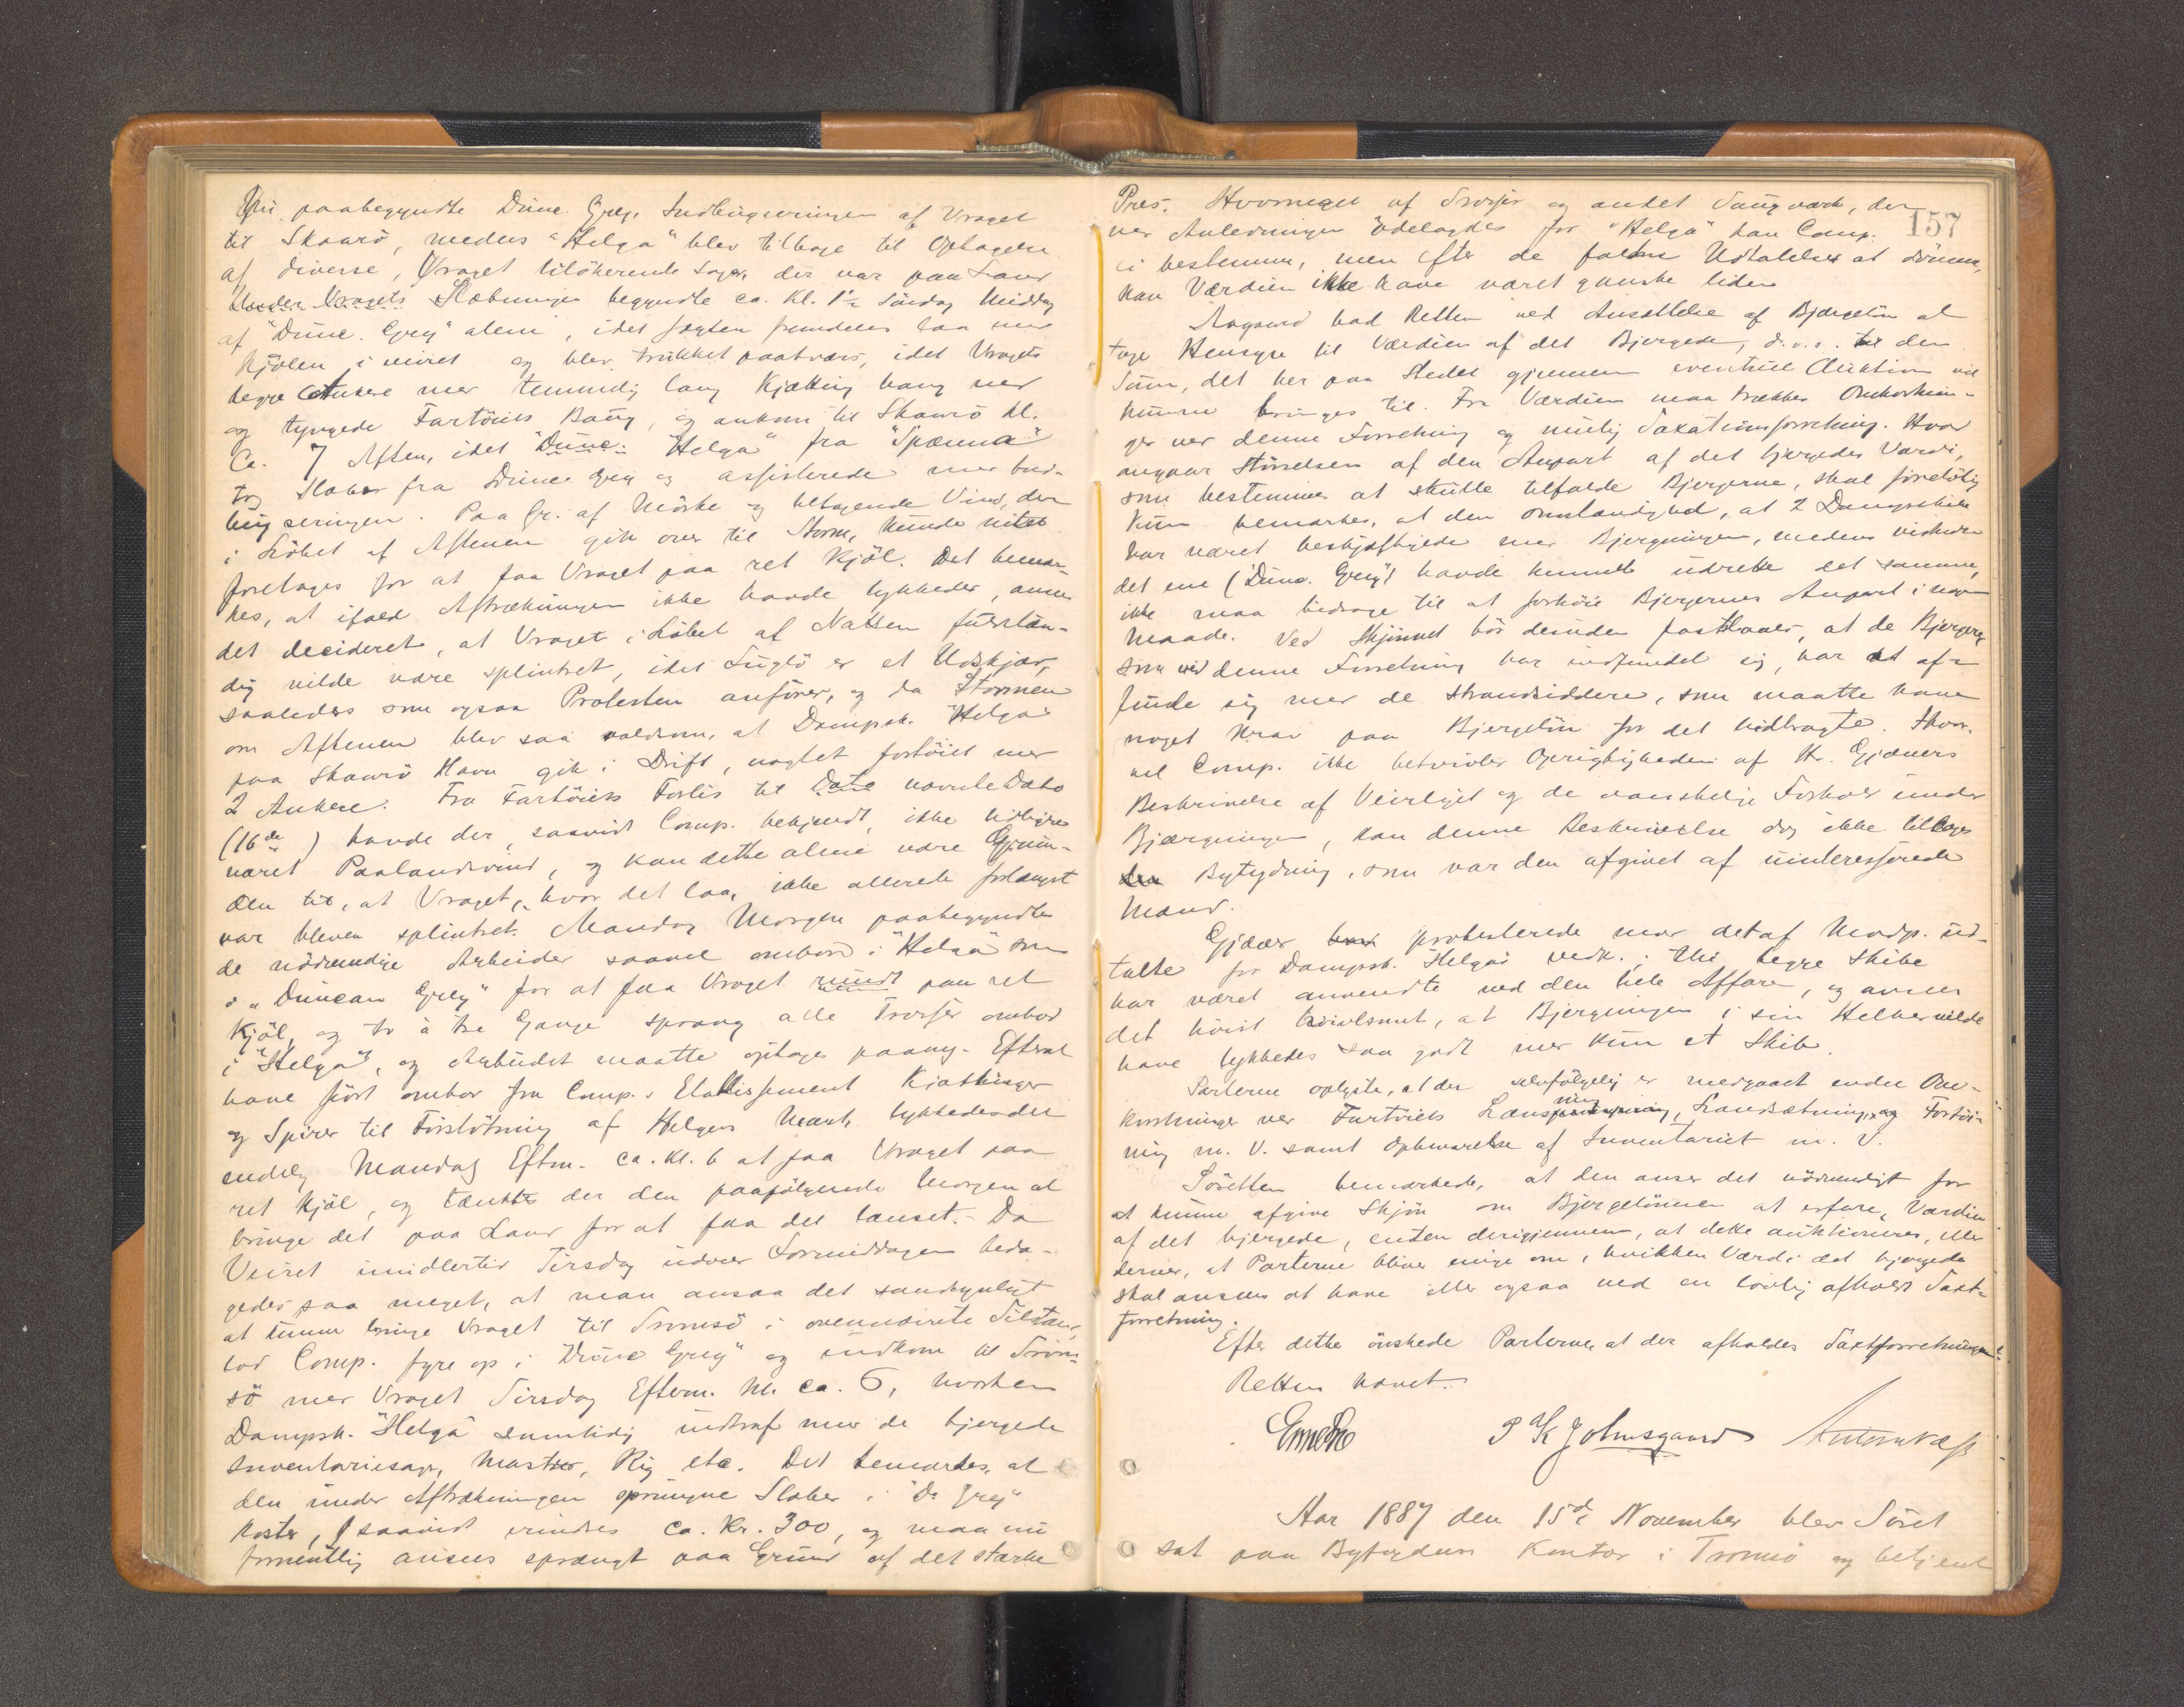 paabegyndte Dunc. Grey Indbugseringen af Vraget
til Skaarö, medens "Helga" blev tilbage til Optagelse
af diverse, Vraget tilhörende Sager, der var paa Land
Under Vragets Slæbningen begyndte ca. Kl. 1½ Söndag Middag
af "Dunc. Grey" alene, idet Jagten fremdeles laa med
Kjölen i veiret og blev trukket paatværs, idet Vragets
begge Ankere med temmelig lang Kjætting hang ned
og tyngede Fartöiets Baug, og ankom til Skaarö Kl.
Ca. 7 Aften, idet Dunc. "Helga" fra "Spænna"
tog Slæber fra Dunc. Grey og assisterede med bud-
bugseringen. Paa Gr. af Mörke og tiltagende Vind, der
i Löbet af Aftenen gik over til Storm, kunde intet
foretages for at faa Vraget paa ret Kjöl. Det bemær-
kes, at ifald Aftrækningen ikke havde lykkedes, ansees
det decideret, at Vraget i Löbet af Natten fuldstæn-
dig vilde være splintret, idet Fuglö er et Udskjær,
saaledes som ogsaa Protesten anförer, og da Stormen
om Aftenen blev saa voldsom, at Dampsk. "Helga"
paa Skaarö Havn gik i Drift, uagtet fortöiet med
2 Ankere. Fra Fartöiets Forlis til Dato nævnte Dato
(16de) havde der, saavidt Comp. bekjendt, ikke tidligere
været Paalandsvind, og kan dette alene være Grun-
den til, at Vraget, hvor det laa, ikke allerede forlængst
var bleven splintret. Mandag Morgen paabegyndtes
de nödvendige Arbeider saavel ombord i "Helga" som
i "Duncan Grey" for at faa Vraget rundt paa ret
Kjöl, og to à tre Gange sprang alle Trosser ombord
i "Helga", og Arbeidet maatte optages paany. Efterat
have fört ombord fra Comp.s Etablissement Kjættinger
og Spirer til Forstötning af Helgas Mast, lykkedes det
endelig Mandag Eftm. ca. Kl. 6 at faa Vraget paa
ret Kjöl, og tænktes der den paafölgende Morgen at
bringe det paa Land for at faa det lænset. Da
Veiret imidlertid Tirsdag udover Formiddagen beda-
gedes saa meget, at man ansaa det sandsynligt
at kunne bringe Vraget til Tromsö i ovennævnte Tilstand,
lod Comp. fyre op i "Dunc Grey" og indkom til Trom-
sö med Vraget Tirsdag Efterm. Kl. ca. 6, hvorhen
Dampsk. "Helga" samtidig indtraf med de bjergede
Inventariesager, Master, Rig etc. Det bemærkes, at
den under Aftrækningen sprungne Slæber i "D. Grey"
koster, saavidt erindres ca. Kr. 300, og maa nu
formentlig ansees sprængt paa Grund af det stærke
157
Pres. Hvormeget af Trosser og andet Taugværk, der
ved Anledningen ödelagdes for "Helga" kan Comp.
ei bestemme, men efter de faldne Udtalelser at dömme,
kan Værdien ikke have været ganske liden
Aagaard bad Retten ved Ansættelse af Bjergelön at
tage Hensyn til Værdien af det Bjergede, d.v.s. til den
Sum, det her paa Stedet gjennem eventuel Auktion vil
kunne bringes til. Fra Værdien maa trækkes Omkostnin-
ger ved denne Forretning og mulig Taxationsforretning. Hvad
angaar Störrelsen af den Anpart af det bjergedes Værdi,
som bestemmes at skulle tilfalde Bjergerne, skal forelöbig
kun bemærkes, at den Omstændighed, at 2 Dampskibe
har været beskjæftigede med Bjergningen, medens vistnok
det ene ("Dunc. Grey") havde kunnet udrette det samme,
ikke maa bidrage til at forhöie Bjergernes Anpart i nogen
Maade. Ved Skjönnet bör desuden fastslaaes, at de Bjergere
som ved denne Forretning har indfundet sig, har at af-
finde sig med de Strandsiddere, som maatte have
noget Krav paa Bjergelön for det bidbragte. Skjön-
vel Comp. ikke betvivler Oprigtigheden af Hr. Gjævers
Beskrivelse af Veirliget og de vanskelige Forhold under
Bjærgningen, kan denne Beskrivelse dog ikke tillægges
den Bytydning, som var den afgivet af uinteresserede
Mænd.
Gjæver protesterede mod det af Modp. ud-
talte for Dampsk. Helgas Vedk.; thi begge Skibe
har været anvendte ved den hele Affære, og ansees
det höist tvivlsomt, at Bjergningen i sin Helhed vilde
have lykkedes saa godt med kun et Skib.
Parterne oplyste, at der selvfölgelig er medgaaet endel Om-
kostninger ved Fartöiets Lænsning, Landsætning, og Fortöi-
ning m. V. samt Opbevarelse af Inventariet m. V.
Söretten bemærkede, at den anser det nödvendigt for
at kunne afgive Skjön om Bjergelönnen at erfare, Værdien
af det bjergede, enten derigjennem, at dette auktioneres, eller
derved, at Parterne bliver enige om, hvilken Værdi det bjergede
skal ansees at have eller ogsaa ved en lovlig afholdt Taxt-
forretning.
Efter dette önskede Parterne, at der afholdes Taxtforretning
Retten hævet.
P K Johnsgaard
Aar 1887 den 15de November blev Söret
sat paa Byfogdens Kontor i Tromsö og betjent